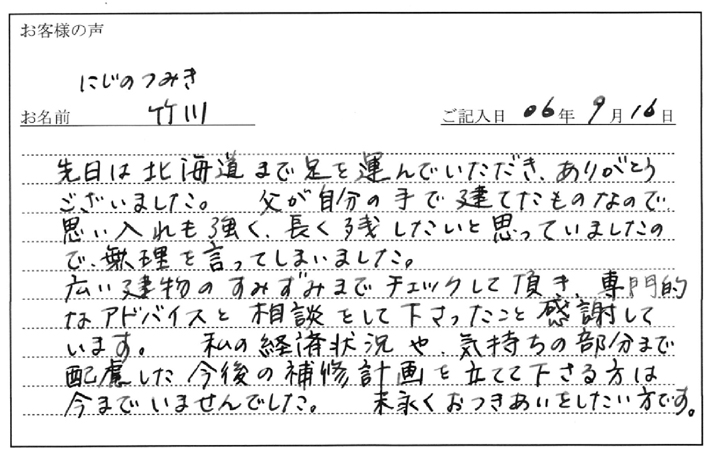 お客様の声
にじのつみき
お名前 竹川 ご記入日 06年 9月16日
先日は北海道まで足を運んでいただき、ありがとう
ございました。 父が自分の手で建てたものなので、
思い入れも強く、長く残したいと思っていましたの
で、無理を言ってしまいました。
広い建物のすみずみまでチェックして頂き、専門的
なアドバイスと相談をして下さったこと感謝して
います。 私の経済状況や、気持ちの部分まで
配慮した今後の補修計画を立てて下さる方は
今までいませんでした。 末永くおつきあいをしたい方です。